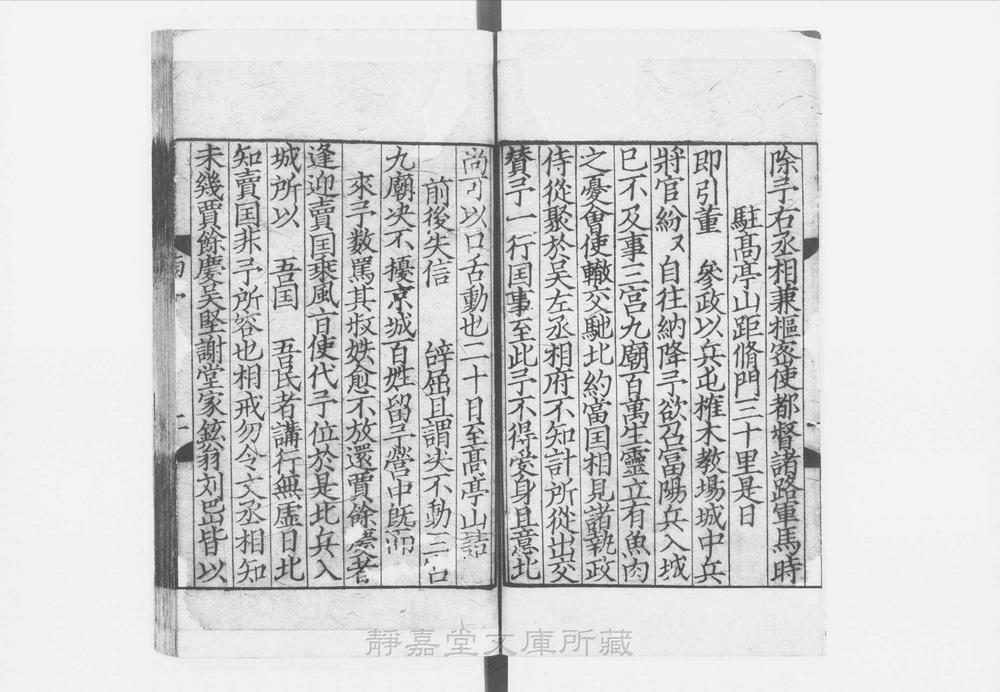 除予右丞相兼樞密使都督諸路軍馬時
駐高亭山距脩門三十里是日
即引董　參政以兵屯榷木教場城中兵
將官紛〻自往納降予欲召富陽兵入城
已不及事三宮九廟百萬生靈立有魚肉
之憂會使轍交馳北約當国相見諸執政
侍從聚於吴左丞相府不知計所從出交
賛予一行国事至此予不得愛身且意北
尚可以口舌動也二十日至高亭山詰
前後失信　辞屈且謂决不動三宮
九廟决不擾京城百姓留予營中旣而
來予数罵其叔姪愈不放還賈餘慶者
逢迎賣国乘風旨使代予位於是北兵入
城所以　吾国　吾民者講行無虚日北
知賣国非予所容也相戒勿令文丞相知
未幾賈餘慶吴堅謝堂家鉉翁刘岊皆以
靜嘉堂文庫所藏